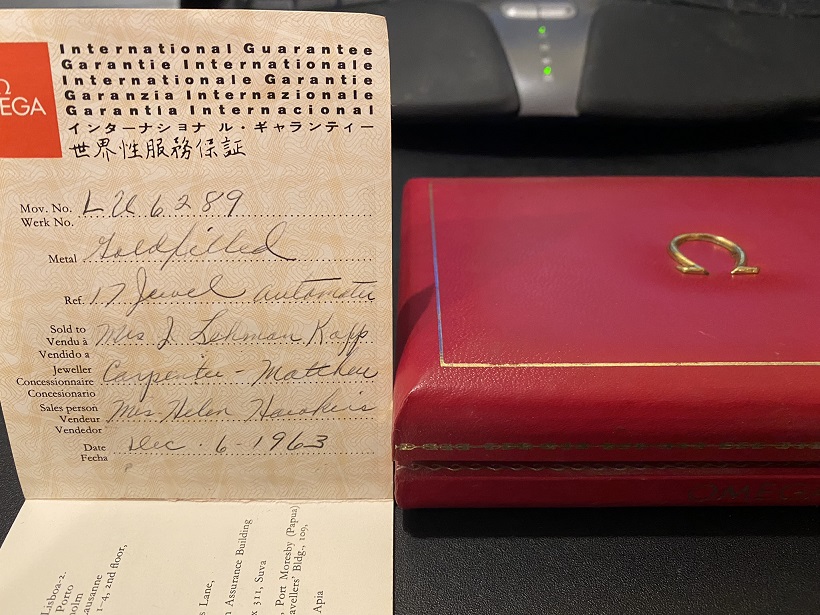 Ω
EGA
International Guarantee
Garantie Internationale
Internationale Garantie
Garanzia Internazionale
Garantia Internacional
インターナショナル・ギャランティー
世界性服務保証
Mov. No. L U 6289
Werk No.
Metal Goldfilled
Ref. 17 Jewel automatic
Sold to Mrs J. Lehman Kapp
Vendu à
Vendido a
Jeweller Carpenter - Matthew
Concessionnaire
Concesionario
Sales person Mrs. Helen
Vendeur
Vendedor
Date Dec. 6-1963
Fecha
Lisboa-2.
Porto
holm
ausanne
1-4, 2nd floor,
s Lane,
n Assurance Building
x 311, Suva
Port Moresby (Papua)
avellers' Bldg., 109,
Apia
OMEGA